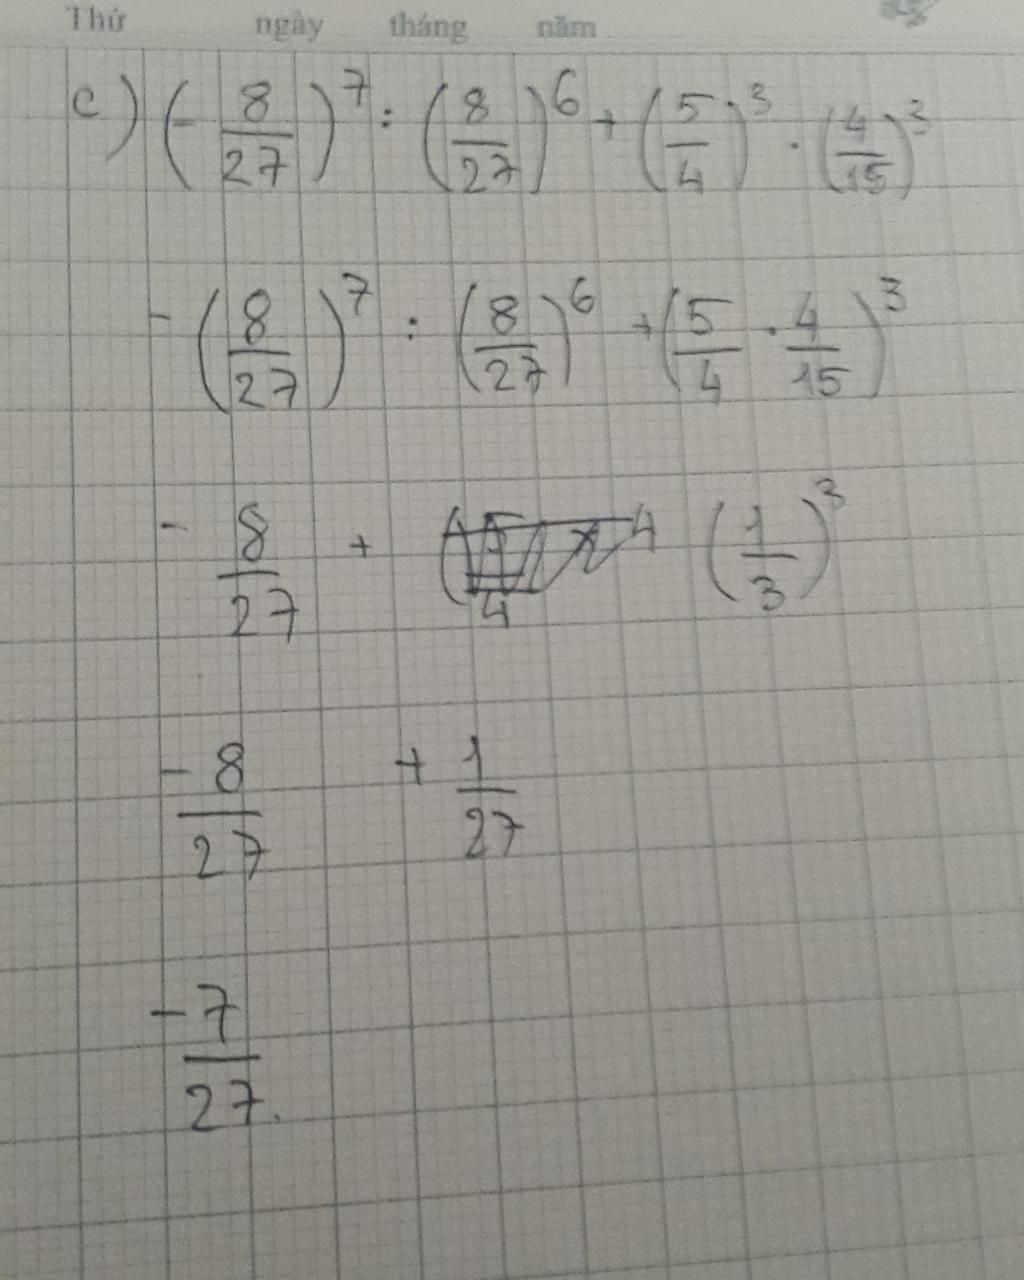 Thứ ngày tháng năm
c) (- 8/27)^7 : (8/27)^6 + (5/4)^3 . (4/15)^3
- (8/27)^7 : (8/27)^6 + (5/4 . 4/15)^3
- 8/27 + (1/3)^3
-8/27 + 1/27
-7/27.